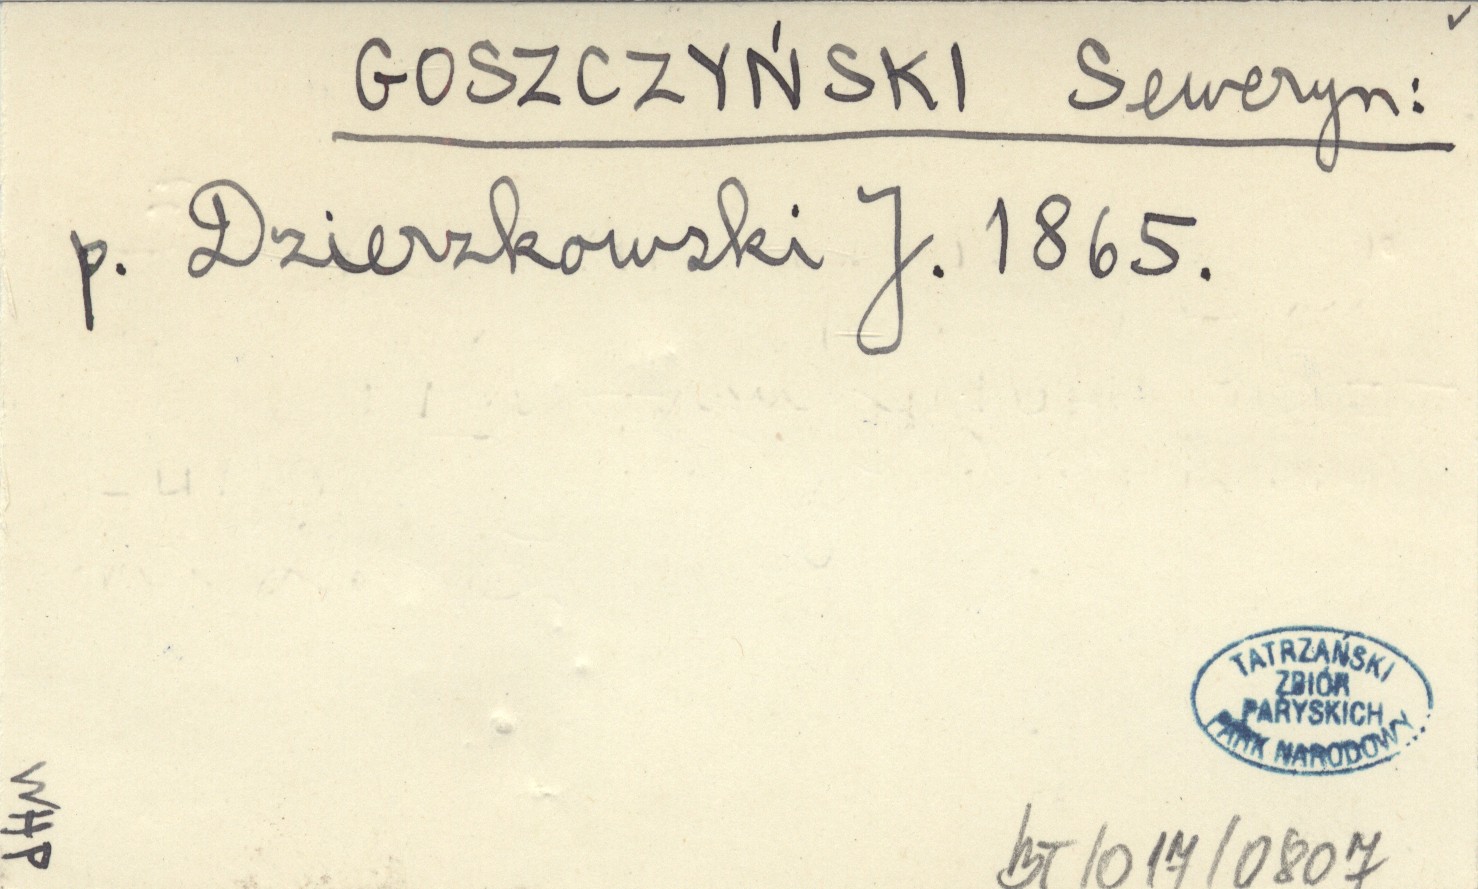 GOSZCZYŃSKI Seweryn:
p. Dzierzkowski J. 1865.
TATRZAŃSKI
ZBIÓR
PARYSKICH
PARK NARODOWY
WHP
BT/017/0807